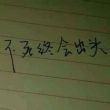 不死终会出头